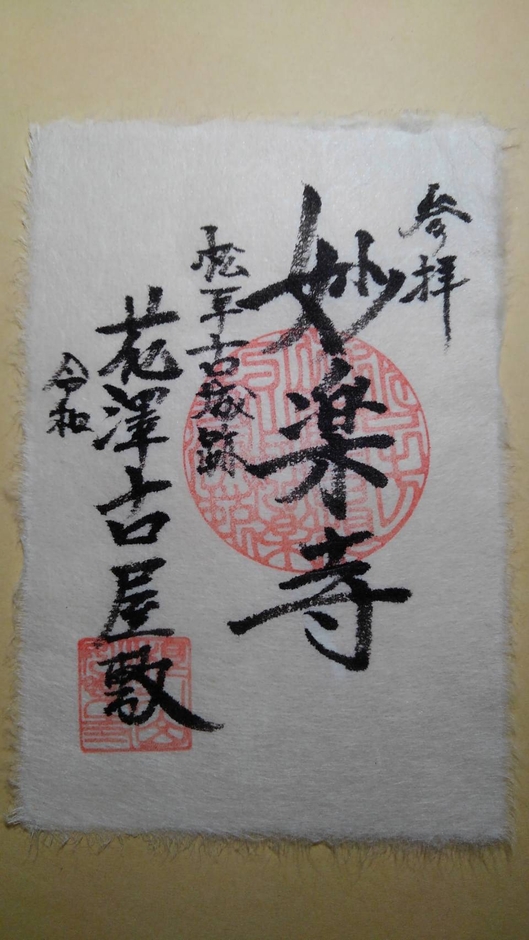 参拝
妙楽寺
松平古城跡
花澤古屋敷
令和